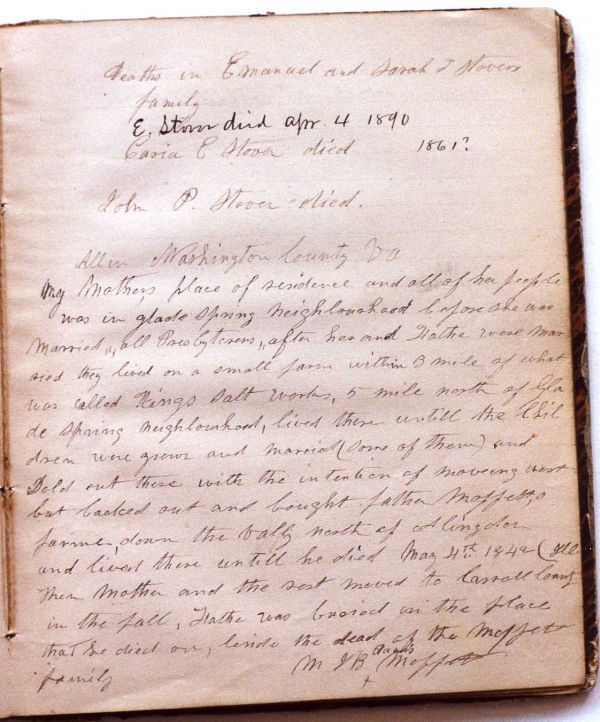 Deaths in Emanuel and Sarah J Stovers
family
E. Stover died apr. 4 1890
E Stover died 1861?
John P. Stover died.
All in Washington County Va
My Mothers place of residence and all of her people
was in glade Spring Neighbourhood before she was
Married, all Presbyterens, after her and Fathe were mar
ried they lived on a small farm within 3 mile of what
was called Kings Salt Works, 5 mile north of Gla
de Spring Neighbourhood, lived there untill the Chil
dren were grown and married (some of them) and
Sold out there with the intention of moveing west
but backed out and bought father Moffett,s
farm, down the Vally north of Abingdon
and lived there untill he died May 4th 1842
then Mother and the rest moved to Carroll County
in the fall, Fathe was buried on the place
that he died on, beside the dead of the Moffett
family M J B Moffett